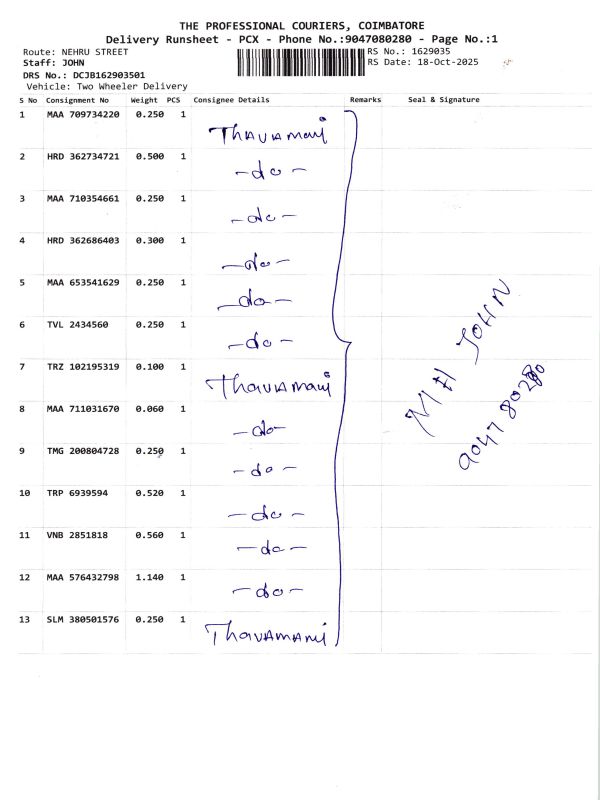 THE PROFESSIONAL COURIERS, COIMBATORE
Delivery Runsheet - PCX - Phone No.:9047080280 - Page No.:1
Route: NEHRU STREET RS No.: 1629035
Staff: JOHN RS Date: 18-Oct-2025
DRS No.: DCJB162903501
Vehicle: Two Wheeler Delivery
S No Consignment No Weight PCS Consignee Details Remarks Seal & Signature
1 MAA 709734220 0.250 1 Thavamani
2 HRD 362734721 0.500 1 -do-
3 MAA 710354661 0.250 1 -do-
4 HRD 362686403 0.300 1 -do-
5 MAA 653541629 0.250 1 -do-
6 TVL 2434560 0.250 1 -do-
7 TRZ 102195319 0.100 1 Thavamani
8 MAA 711031670 0.060 1 -do-
9 TMG 200804728 0.250 1 -do-
10 TRP 6939594 0.520 1 -do-
11 VNB 2851818 0.560 1 -do-
12 MAA 576432798 1.140 1 -do-
13 SLM 380501576 0.250 1 Thavamani
JOHN
9047 80280